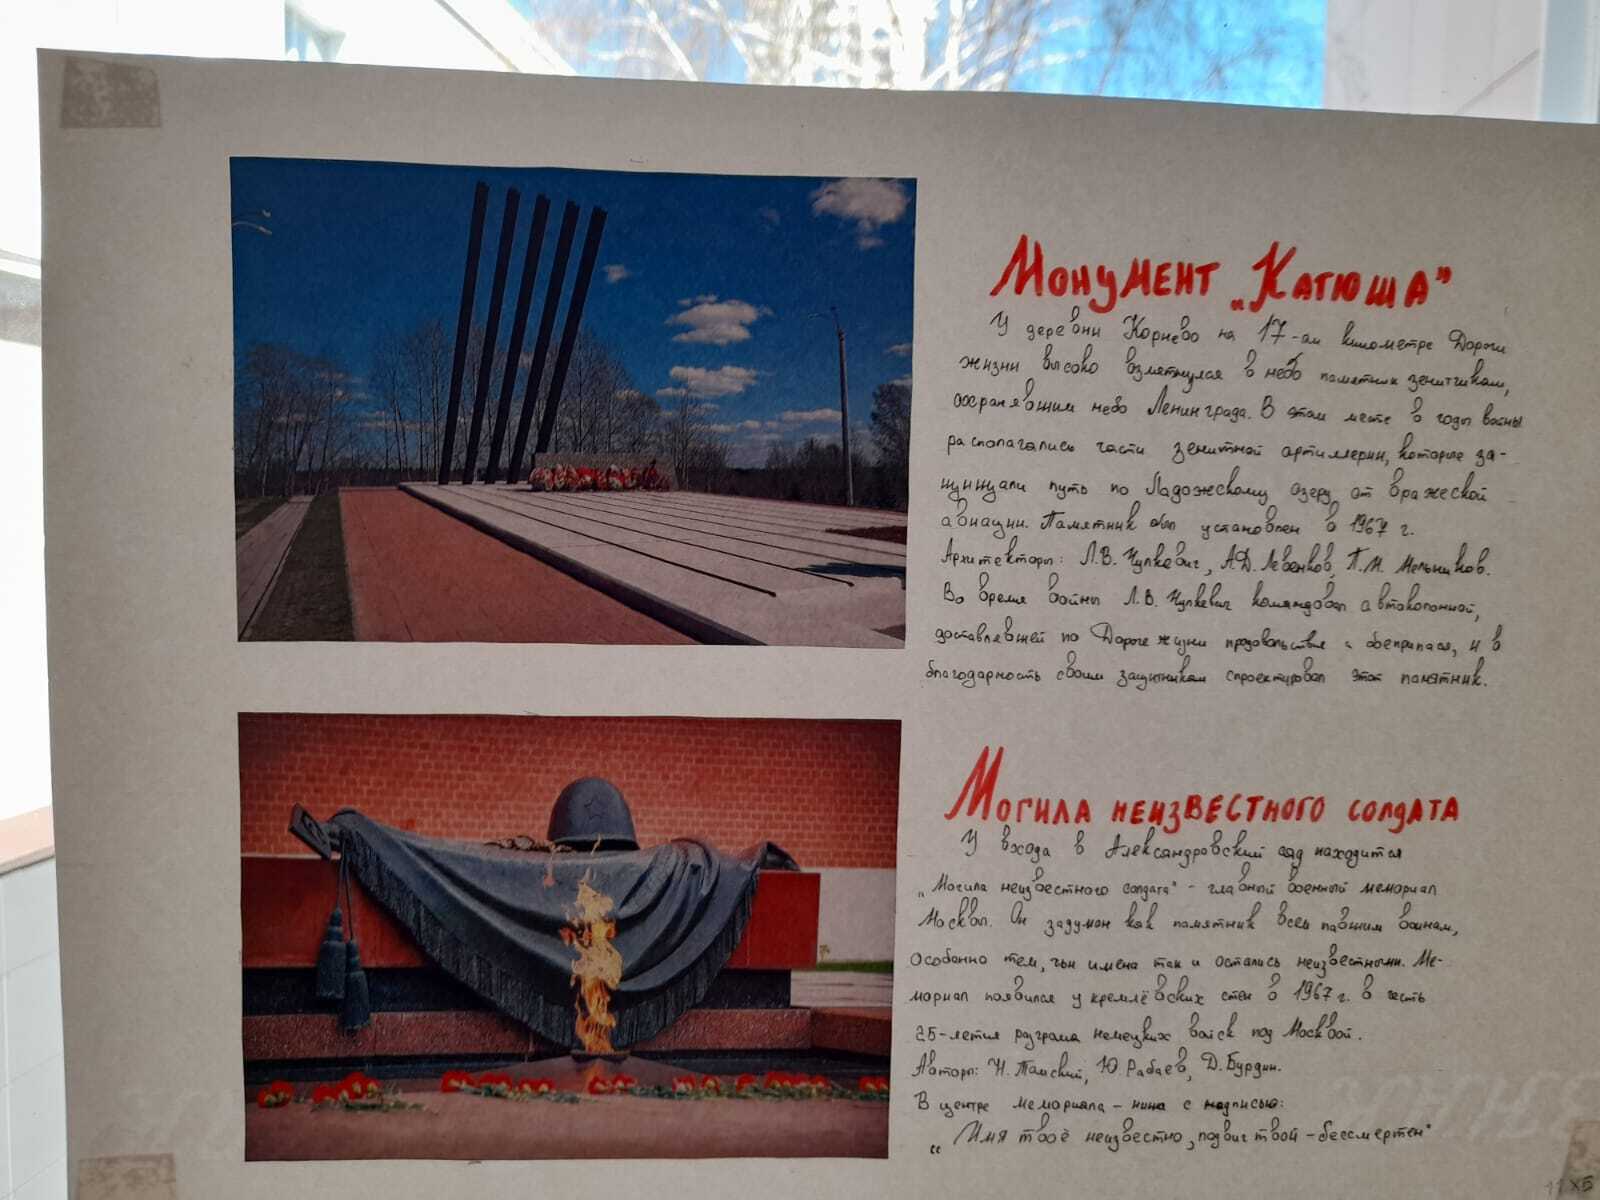 Монумент „Катюша”
У деревни Корнево на 17-ом километре Дороги
жизни высоко взметнулся в небо памятник зенитчикам,
охранявшим небо Ленинграда. В этом месте в годы войны
располагались части зенитной артиллерии, которые за-
щищали путь по Ладожскому озеру от вражеской
авиации. Памятник был установлен в 1967 г.
Архитекторы: Л.В. Чулкевич, А.Д. Левенков, П.М. Мельников.
Во время войны Л.В. Чулкевич командовал автоколонной,
доставлявшей по Дороге жизни продовольствие и боеприпасы, и в
благодарность своим защитникам спроектировал этот памятник.
Могила неизвестного солдата
У входа в Александровский сад находится
„Могила неизвестного солдата" - главный военный мемориал
Москвы. Он задуман как памятник всем павшим воинам,
особенно тем, чьи имена так и остались неизвестными. Ме-
мориал появился у кремлёвских стен в 1967 г. в честь
25-летия разгрома немецких войск под Москвой.
Авторы: Н. Томский, Ю. Рабаев, Д. Бурдин.
В центре мемориала - ниша с надписью:
„Имя твоё неизвестно, подвиг твой - бессмертен"